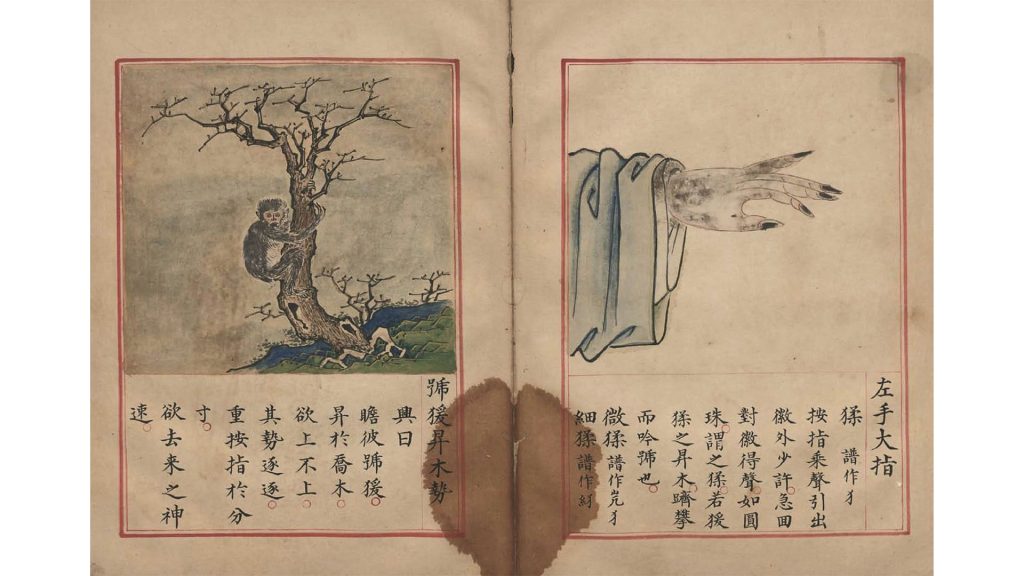 左手大指
猱 譜作犭
按指乘聲引出
徽外少許。急囬
對徽得聲。如圓
珠。謂之猱。若猨
猱之昇木。躋攀
而吟號也。
微猱 譜作
細猱 譜作
號猨昇木勢
興曰
瞻彼號猨。
昇於喬木。
欲上不上。
其勢逐逐。
重按指於分
寸。
欲去来之神
速。